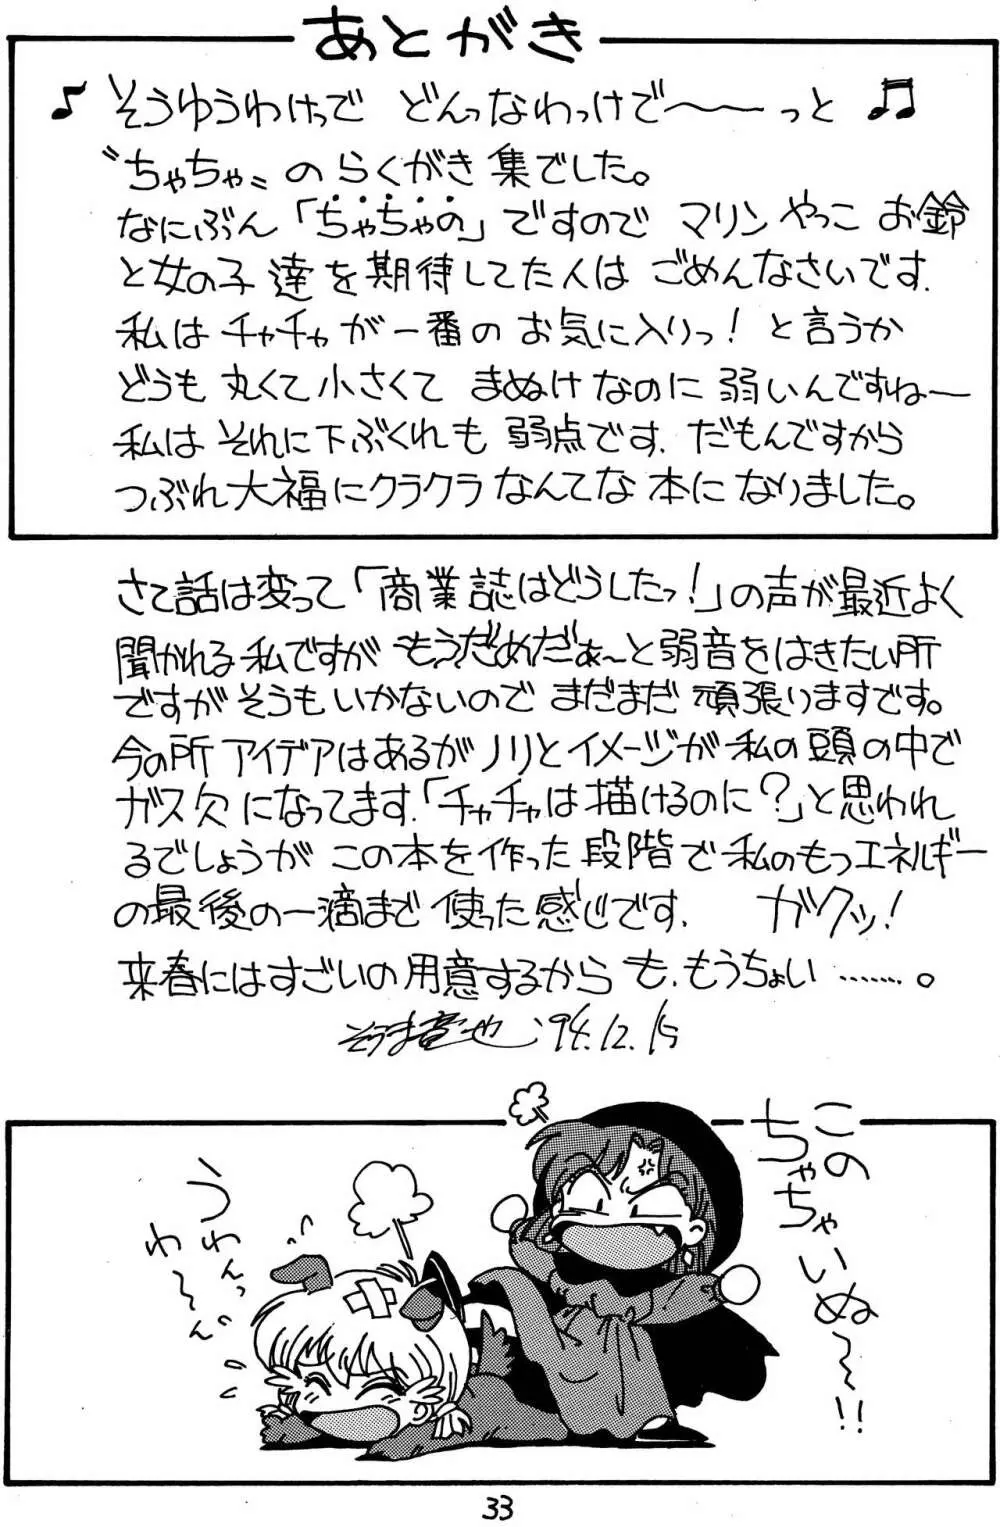 あとがき
♪ そうゆうわけっで どんっなわっけで〜〜っと ♫
〝ちゃちゃ〟のらくがき集でした。
なにぶん「ちゃちゃの」ですので マリンやっこ お鈴
と女の子達を期待してた人は ごめんなさいです.
私はチャチャが一番のお気に入りっ! と言うか
どうも丸くて小さくて まぬけなのに弱いんですね〜
私はそれに下ぶくれも 弱点です. だもんですから
つぶれ大福にクラクラなんてな本になりました。
さて話は変って「商業誌はどうしたっ!」の声が最近よく
聞かれる私ですが もうだめだぁ〜と弱音をはきたい所
ですがそうもいかないので まだまだ頑張りますです。
今の所アイデアはあるがノリとイメージが私の頭の中で
ガス欠になってます.「チャチャは描けるのに?」と思われ
るでしょうが この本を作った段階で私のもつエネルギー
の最後の一滴まで使った感じです. ガクッ!
来春にはすごいの用意するから も,もうちょい………。
'94.12.15
このちゃちゃいぬ〜〜!!
うわんっわ〜〜ん
33